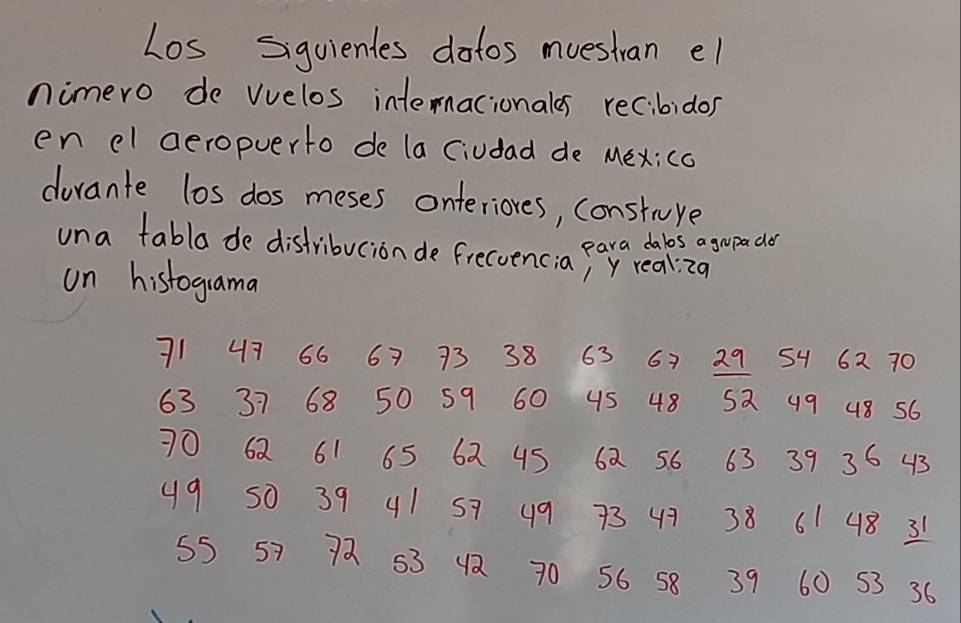 Los siguientes datos muestran el
número de vuelos internacionales recibidos
en el aeropuerto de la Ciudad de México
durante los dos meses anteriores, construye
una tabla de distribución de frecuencia para datos agrupados, y realiza
un histograma
71 47 66 67 73 38 63 67 29 54 62 70
63 37 68 50 59 60 45 48 52 49 48 56
70 62 61 65 62 45 62 56 63 39 36 43
49 50 39 41 57 49 73 47 38 61 48 31
55 57 72 53 42 70 56 58 39 60 53 36